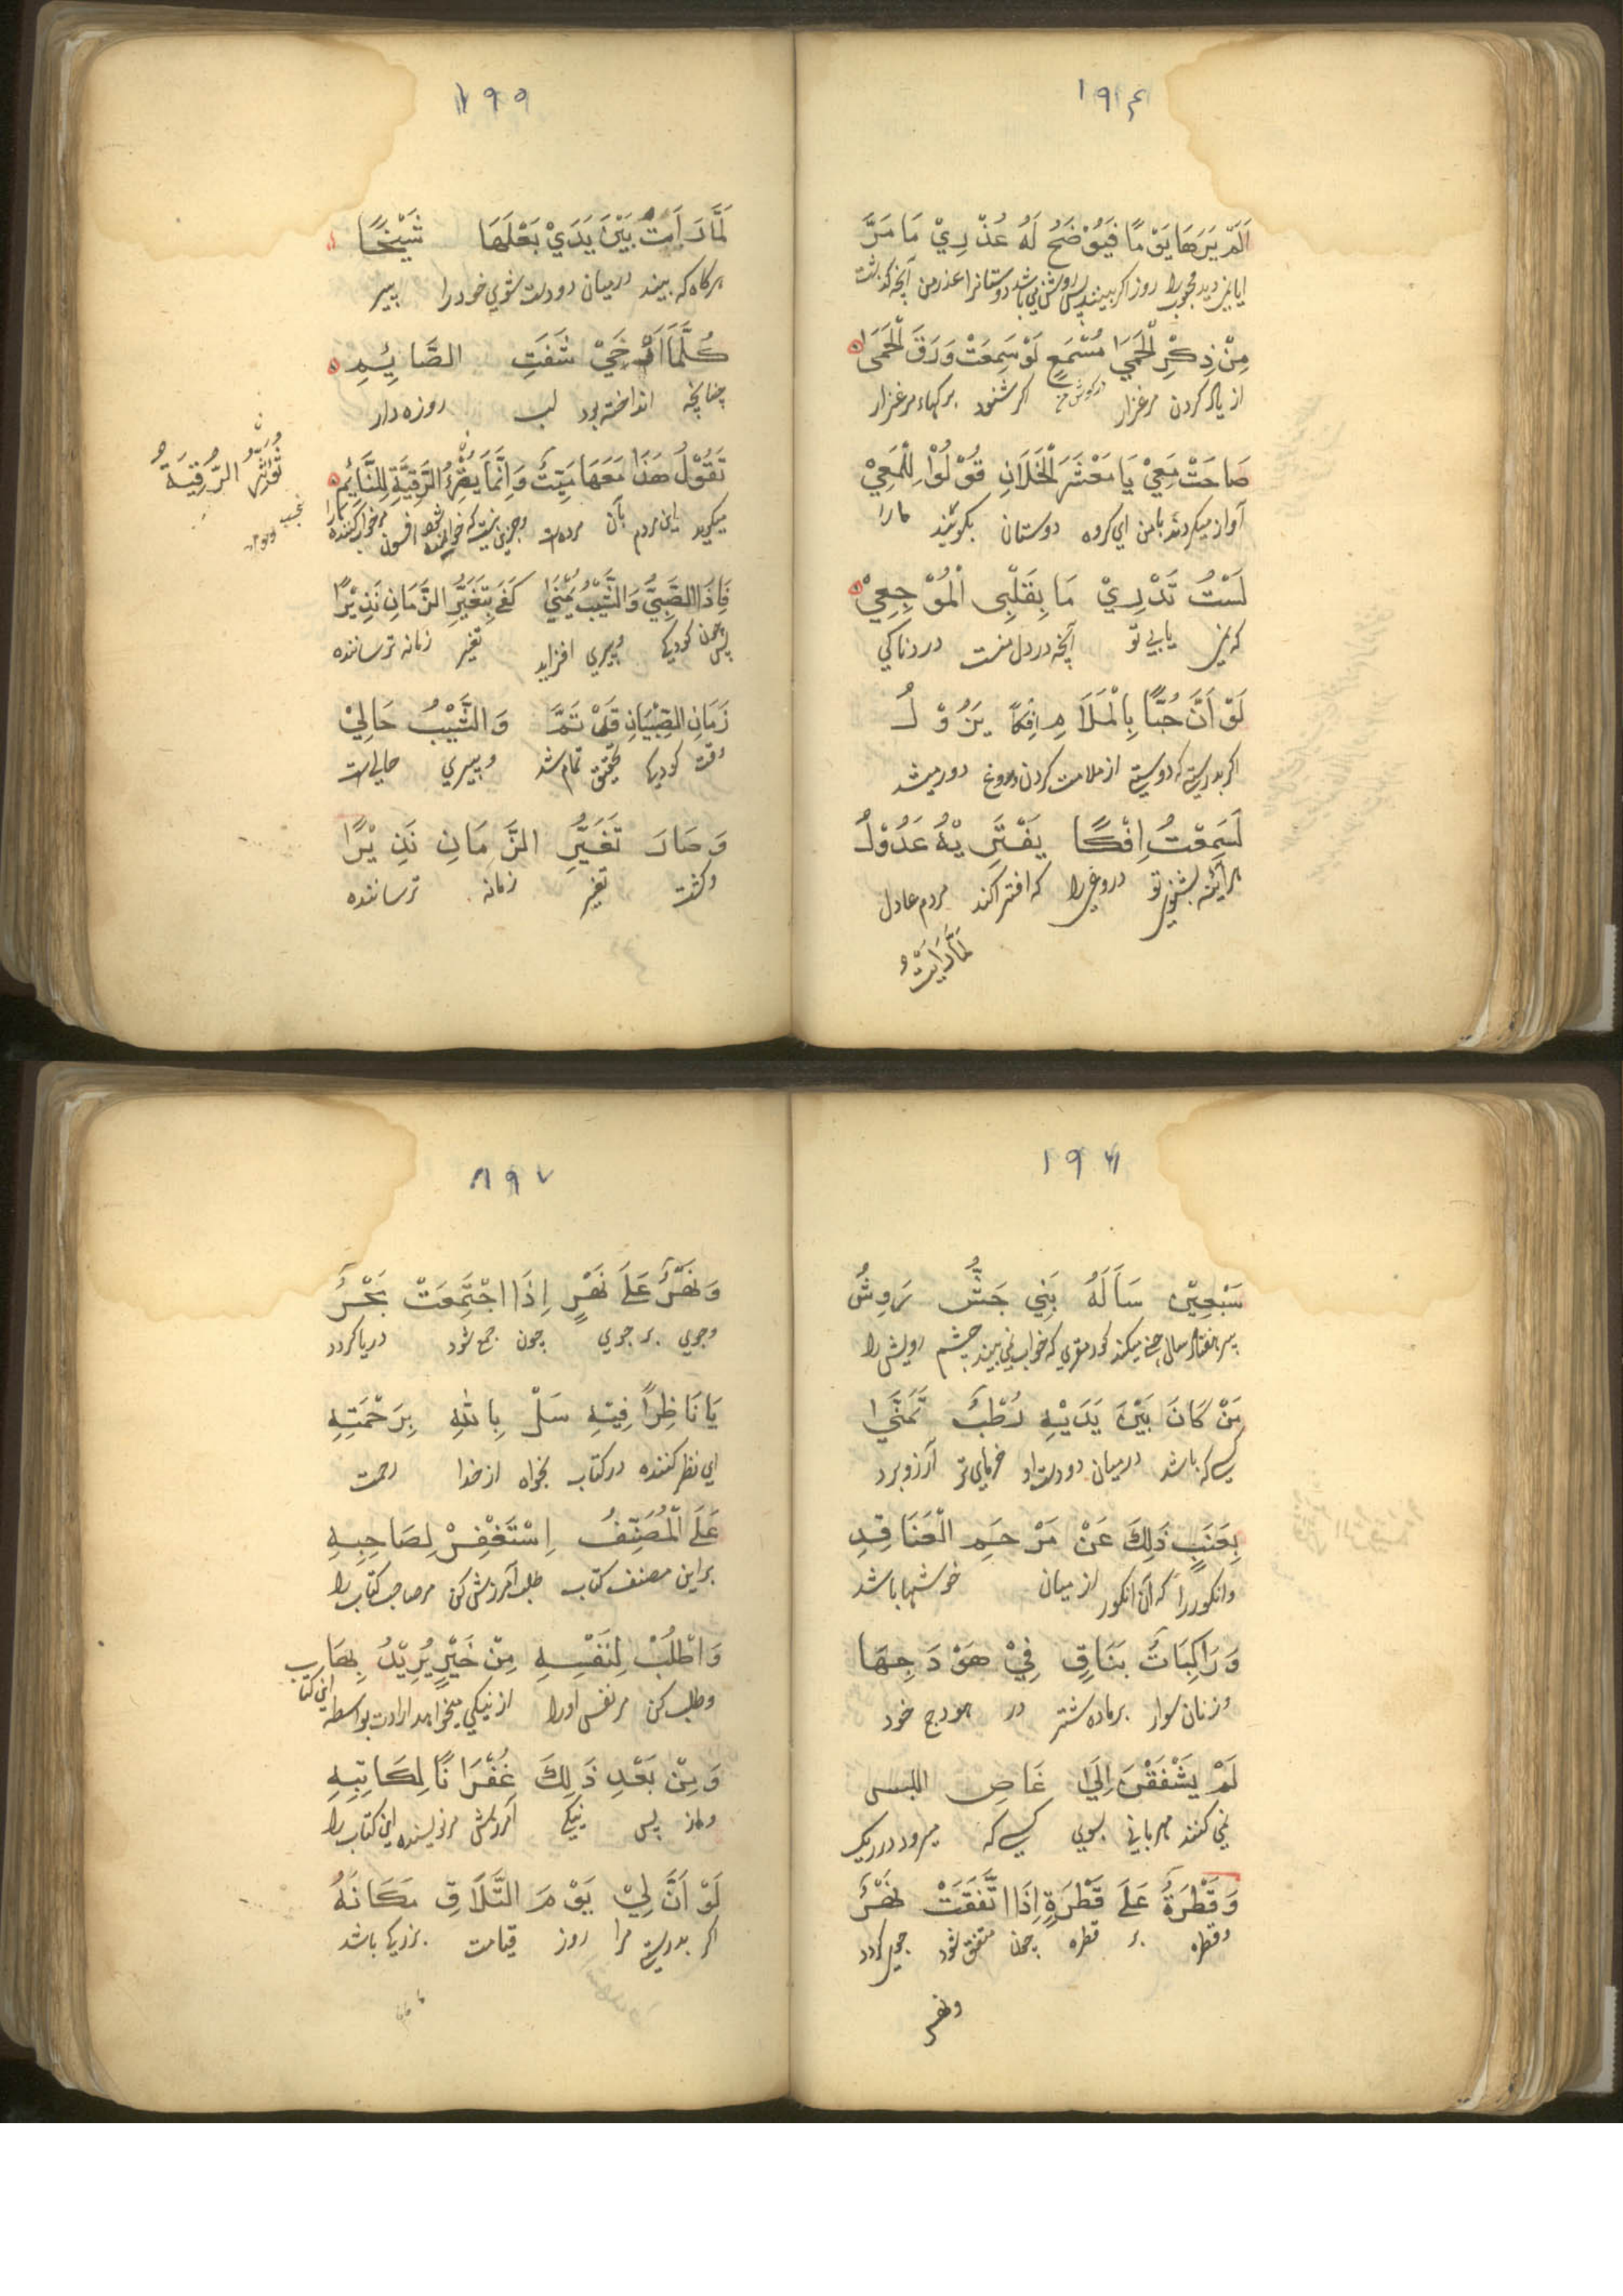 ۱۹۴
اَلَمْ يَرَهَا يَوْمًا فَيُوْضَحُ لَهُ عُذْرِيْ مَا مَرَّ
روز اگر عذر من
مِنْ ذِكْرِ الْحَمَيٰ مُسْمَعٍ لَوْ سَمِعَتْ وَرَقَ الْحَمَى
از یاد کردن مرغزار اگر شنود برگهاء مرغزار
صَاحَتْ مَعِيْ يَا مَعْشَرَ الْخَلَانِ قُوْلُوْا لِلْمَعِيْ
آواز میکردند با من ای گروه دوستان بگوئید
لَسْتُ تَدْرِيْ مَا بِقَلْبِى الْمُوْجِعِيْ
آنچه در دل منست دردناکی
لَوْ اَنَّ حُبًّا بِالْمَلَامِ اِفْكًا يَزُوْلُ
اگر بدرستی که دوستی از ملامت کردن دروغ دور میشد
لَسَمِعْتُ اِفْكًا يَفْتَرِيْهُ عَدُوْلُ
هرآئینه بشنوی تو دروغی را که افترا کند مردم عادل
لَمَّا رَاَيْتُ
۱۹۵
لَمَّا رَاَتْ بَيْنَ يَدَيْ بَعْلَهَا شَيْخًا
هرگاه که بیند درمیان دو دست شوی خود را پیر
كُلَّمَا اَرْخَيْ شَفَتِ الصَّائِمِ
چنانچه انداخته بود لب روزه دار
تَقُوْلُ هَذَا مَعَهَا مَيِّتٌ وَاِنَّمَا الرَّقِيَّةِ لِلنَّائِمِ
میگوید این مردم بآن
الرَّقِيَةُ
فَاِذَا الصَّبِيُّ وَالشَّيْبُ كَفَي بِتَغَيُّرِ الزَّمَانِ نَذِيْرًا
پس چون کودکی و پیری افزاید تغیر زمانه ترساننده
زَمَانِ الصِّبْيَانِ قَدْ تَمَّ وَالشَّيْبُ حَالِيْ
وقت کودکی تحقیق تمام شد و پیری حالی است
وَصَارَ تَغَيُّرِ الزَّمَانِ نَذِيْرًا
و گشت تغیر زمانه ترساننده
۱۹۶
سَبْعِيْنَ سَاَلَهُ بَنِي رَوِشُ
چشم رویش را
مَنْ كَانَ بَيْنَ يَدَيْهِ رُطْبٌ تَمَنَّيٰ
کسی که باشد درمیان دو دست او خرمای تر آرزو برد
بِعَنَبٍ ذَلِكَ عَنْ مَرْحَمِ الْعَنَاقِدِ
و انگور را که آن انگور از میان خوشها باشد
وَرَاكِبَاتٌ بَنَاقٍ فِيْ هَوْدَجِهَا
و زنان سوار بر ماده شتر در هودج خود
لَمْ يَشْفَقْنَ اِلَيٰ غَاصٍ
نمی کنند مهربانی بسوی کسی که میرود در ریک
وَقَطْرَةٌ عَلَى قَطْرَةٍ اِذَا اتَّفَقَتْ نَهْرٌ
و قطره بر قطره چون متفق شود جوی گردد
و نهر
۱۹۷
وَنَهْرٌ عَلَى نَهْرٍ اِذَا اجْتَمَعَتْ بَحْرٌ
و جوی بر جوی چون جمع شود دریا گردد
يَا نَاظِرًا فِيْهِ سَلْ بِاللّٰهِ بِرَحْمَتِهِ
ای نظر کننده در کتاب بخواه از خدا رحمت
عَلَى الْمُصَنِّفُ اِسْتَغْفِرْ لِصَاحِبِهِ
بر این مصنف کتاب طلب آمرزش کن مر صاحب کتاب را
وَاطْلُبْ لِنَفْسِهِ مِنْ خَيْرٍ يُرِيْدُ بِهَا
و طلب کن مر نفس او را از نیکی میخواهد ارادت بواسطه این کتاب
وَمِنْ بَعْدِ ذَلِكَ غُفْرَانًا لِكَاتِبِهِ
و از پس نیکی آمرزش مر نویسنده این کتاب را
لَوْ اَنَّ لِيْ يَوْمَ التَّلَاقِ مَكَانَهُ
اگر بدرستی مرا روز قیامت نزدیک باشد